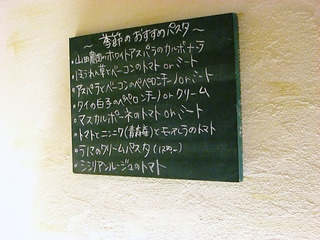 ～季節のおすすめパスタ～
・山田農園のホワイトアスパラのカルボナーラ
・ほうれん草とベーコンのトマト or ミート
・アスパラとベーコンのペペロンチーノ or ミート
・タイの白子のペペロンチーノ or クリーム
・マスカルポーネのトマト or ミート
・トマトとニンニク(青森産)とモッツァレラのトマト
・うにのクリームパスタ
・シシリアンルージュのトマト